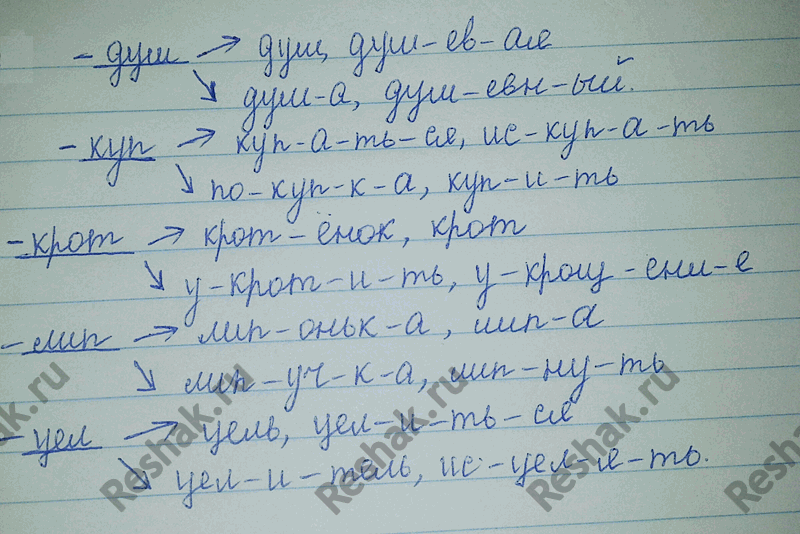 - душ → душ, душ-ев-ая
↘ душ-а, душ-евн-ый.
- куп → куп-а-ть-ся, ис-куп-а-ть
↘ по-куп-к-а, куп-и-ть
- крот → крот-ёнок, крот
↘ у-крот-и-ть, у-крощ-ени-е
- лип → лип-оньк-а, лип-а
↘ лип-уч-к-а, лип-ну-ть
- цел → цель, цел-и-ть-ся
↘ цел-и-тель, ис-цел-я-ть.
Reshak.ru
Reshak.ru
Reshak.ru
Reshak.ru